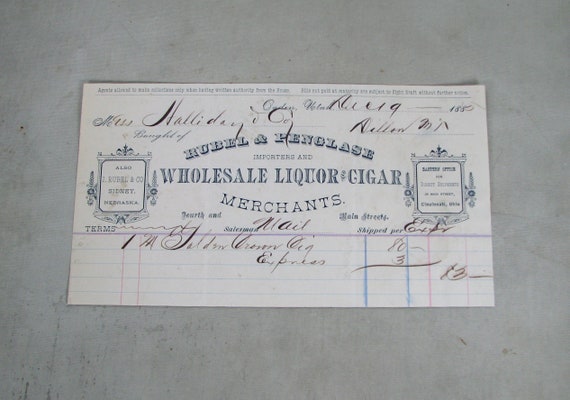 Agents allowed to make collections only when having written authority from the House. Bills not paid at maturity are subject to Sight Draft without further notice.
Ogden, Utah, Dec 19 188
Mess Halliday & Co Dillon
Bought of
RUBEL & PENGLASE
IMPORTERS AND
WHOLESALE LIQUOR AND CIGAR
MERCHANTS.
ALSO
RUBEL & CO
SIDNEY,
NEBRASKA.
EASTERN OFFICE
Cincinnati, Ohio
Fourth and Main Streets.
TERMS Salesman Mail Shipped per Expr
1 M Golden Crown Cig 80 —
Express 3 83 —